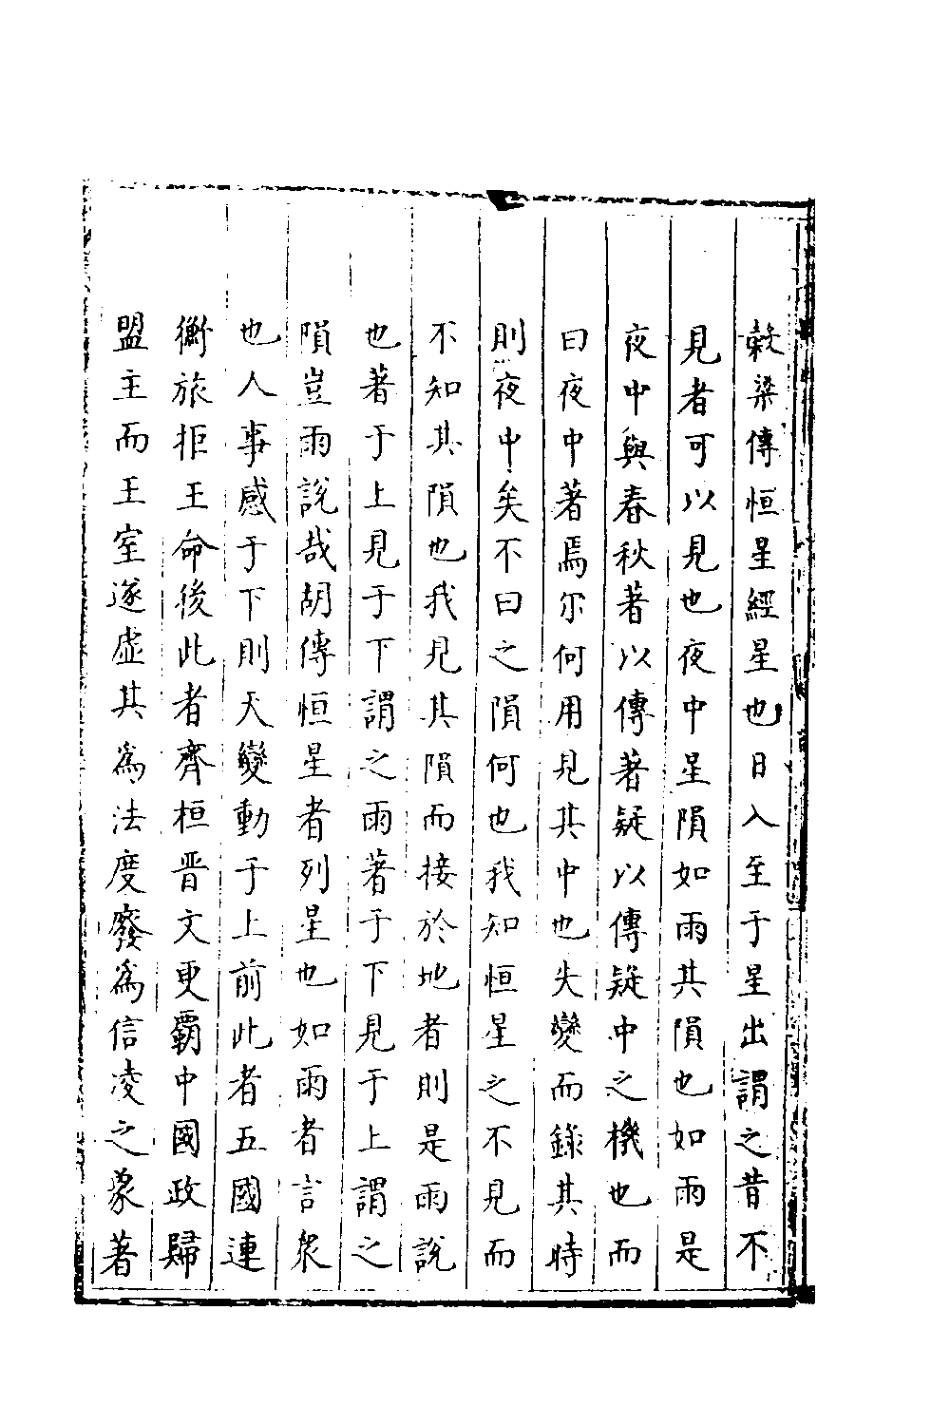 糓梁傳恒星經星也日入至于星出謂之昔不
見者可以見也夜中星隕如雨其隕也如雨是
夜中與春秋著以傳著疑以傳疑中之機也而
曰夜中著焉尔何用見其中也失變而錄其時
則夜中矣不曰之隕何也我知恒星之不見而
不知其隕也我見其隕而接於地者則是雨說
也著于上見于下謂之雨著于下見于上謂之
隕豈雨說哉胡傳恒星者列星也如雨者言衆
也人事感于下則天變動于上前此者五國連
衡旅拒王命後此者齊桓晋文更霸中國政歸
盟主而王室遂虛其為法度廢為信凌之象著